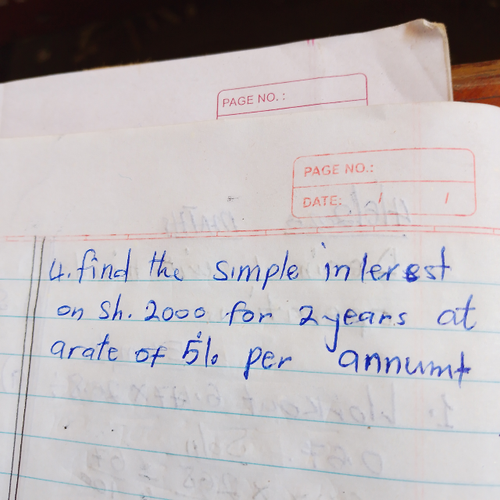 PAGE NO.:
PAGE NO.:
DATE: / /
4. find the simple interest
on Sh. 2000 for 2 years at
a rate of 5% per annum